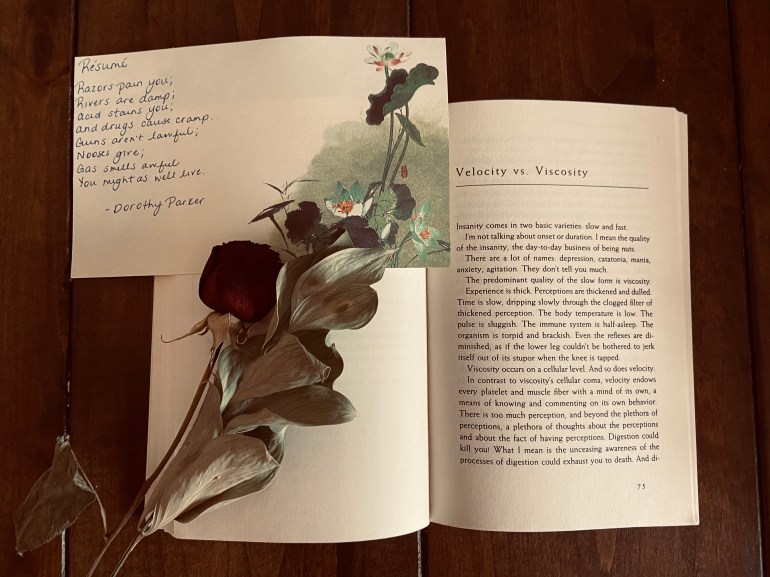 Résumé
Razors pain you;
Rivers are damp;
Acid stains you;
and drugs cause cramp.
Guns aren't lawful;
Nooses give;
Gas smells awful
You might as well live.
- Dorothy Parker
Velocity vs. Viscosity
Insanity comes in two basic varieties: slow and fast.
I'm not talking about onset or duration. I mean the quality
of the insanity, the day-to-day business of being nuts.
There are a lot of names: depression, catatonia, mania,
anxiety, agitation. They don't tell you much.
The predominant quality of the slow form is viscosity.
Experience is thick. Perceptions are thickened and dulled.
Time is slow, dripping slowly through the clogged filter of
thickened perception. The body temperature is low. The
pulse is sluggish. The immune system is half-asleep. The
organism is torpid and brackish. Even the reflexes are di-
minished, as if the lower leg couldn't be bothered to jerk
itself out of its stupor when the knee is tapped.
Viscosity occurs on a cellular level. And so does velocity.
In contrast to viscosity's cellular coma, velocity endows
every platelet and muscle fiber with a mind of its own, a
means of knowing and commenting on its own behavior.
There is too much perception, and beyond the plethora of
perceptions, a plethora of thoughts about the perceptions
and about the fact of having perceptions. Digestion could
kill you! What I mean is the unceasing awareness of the
processes of digestion could exhaust you to death. And di-
75